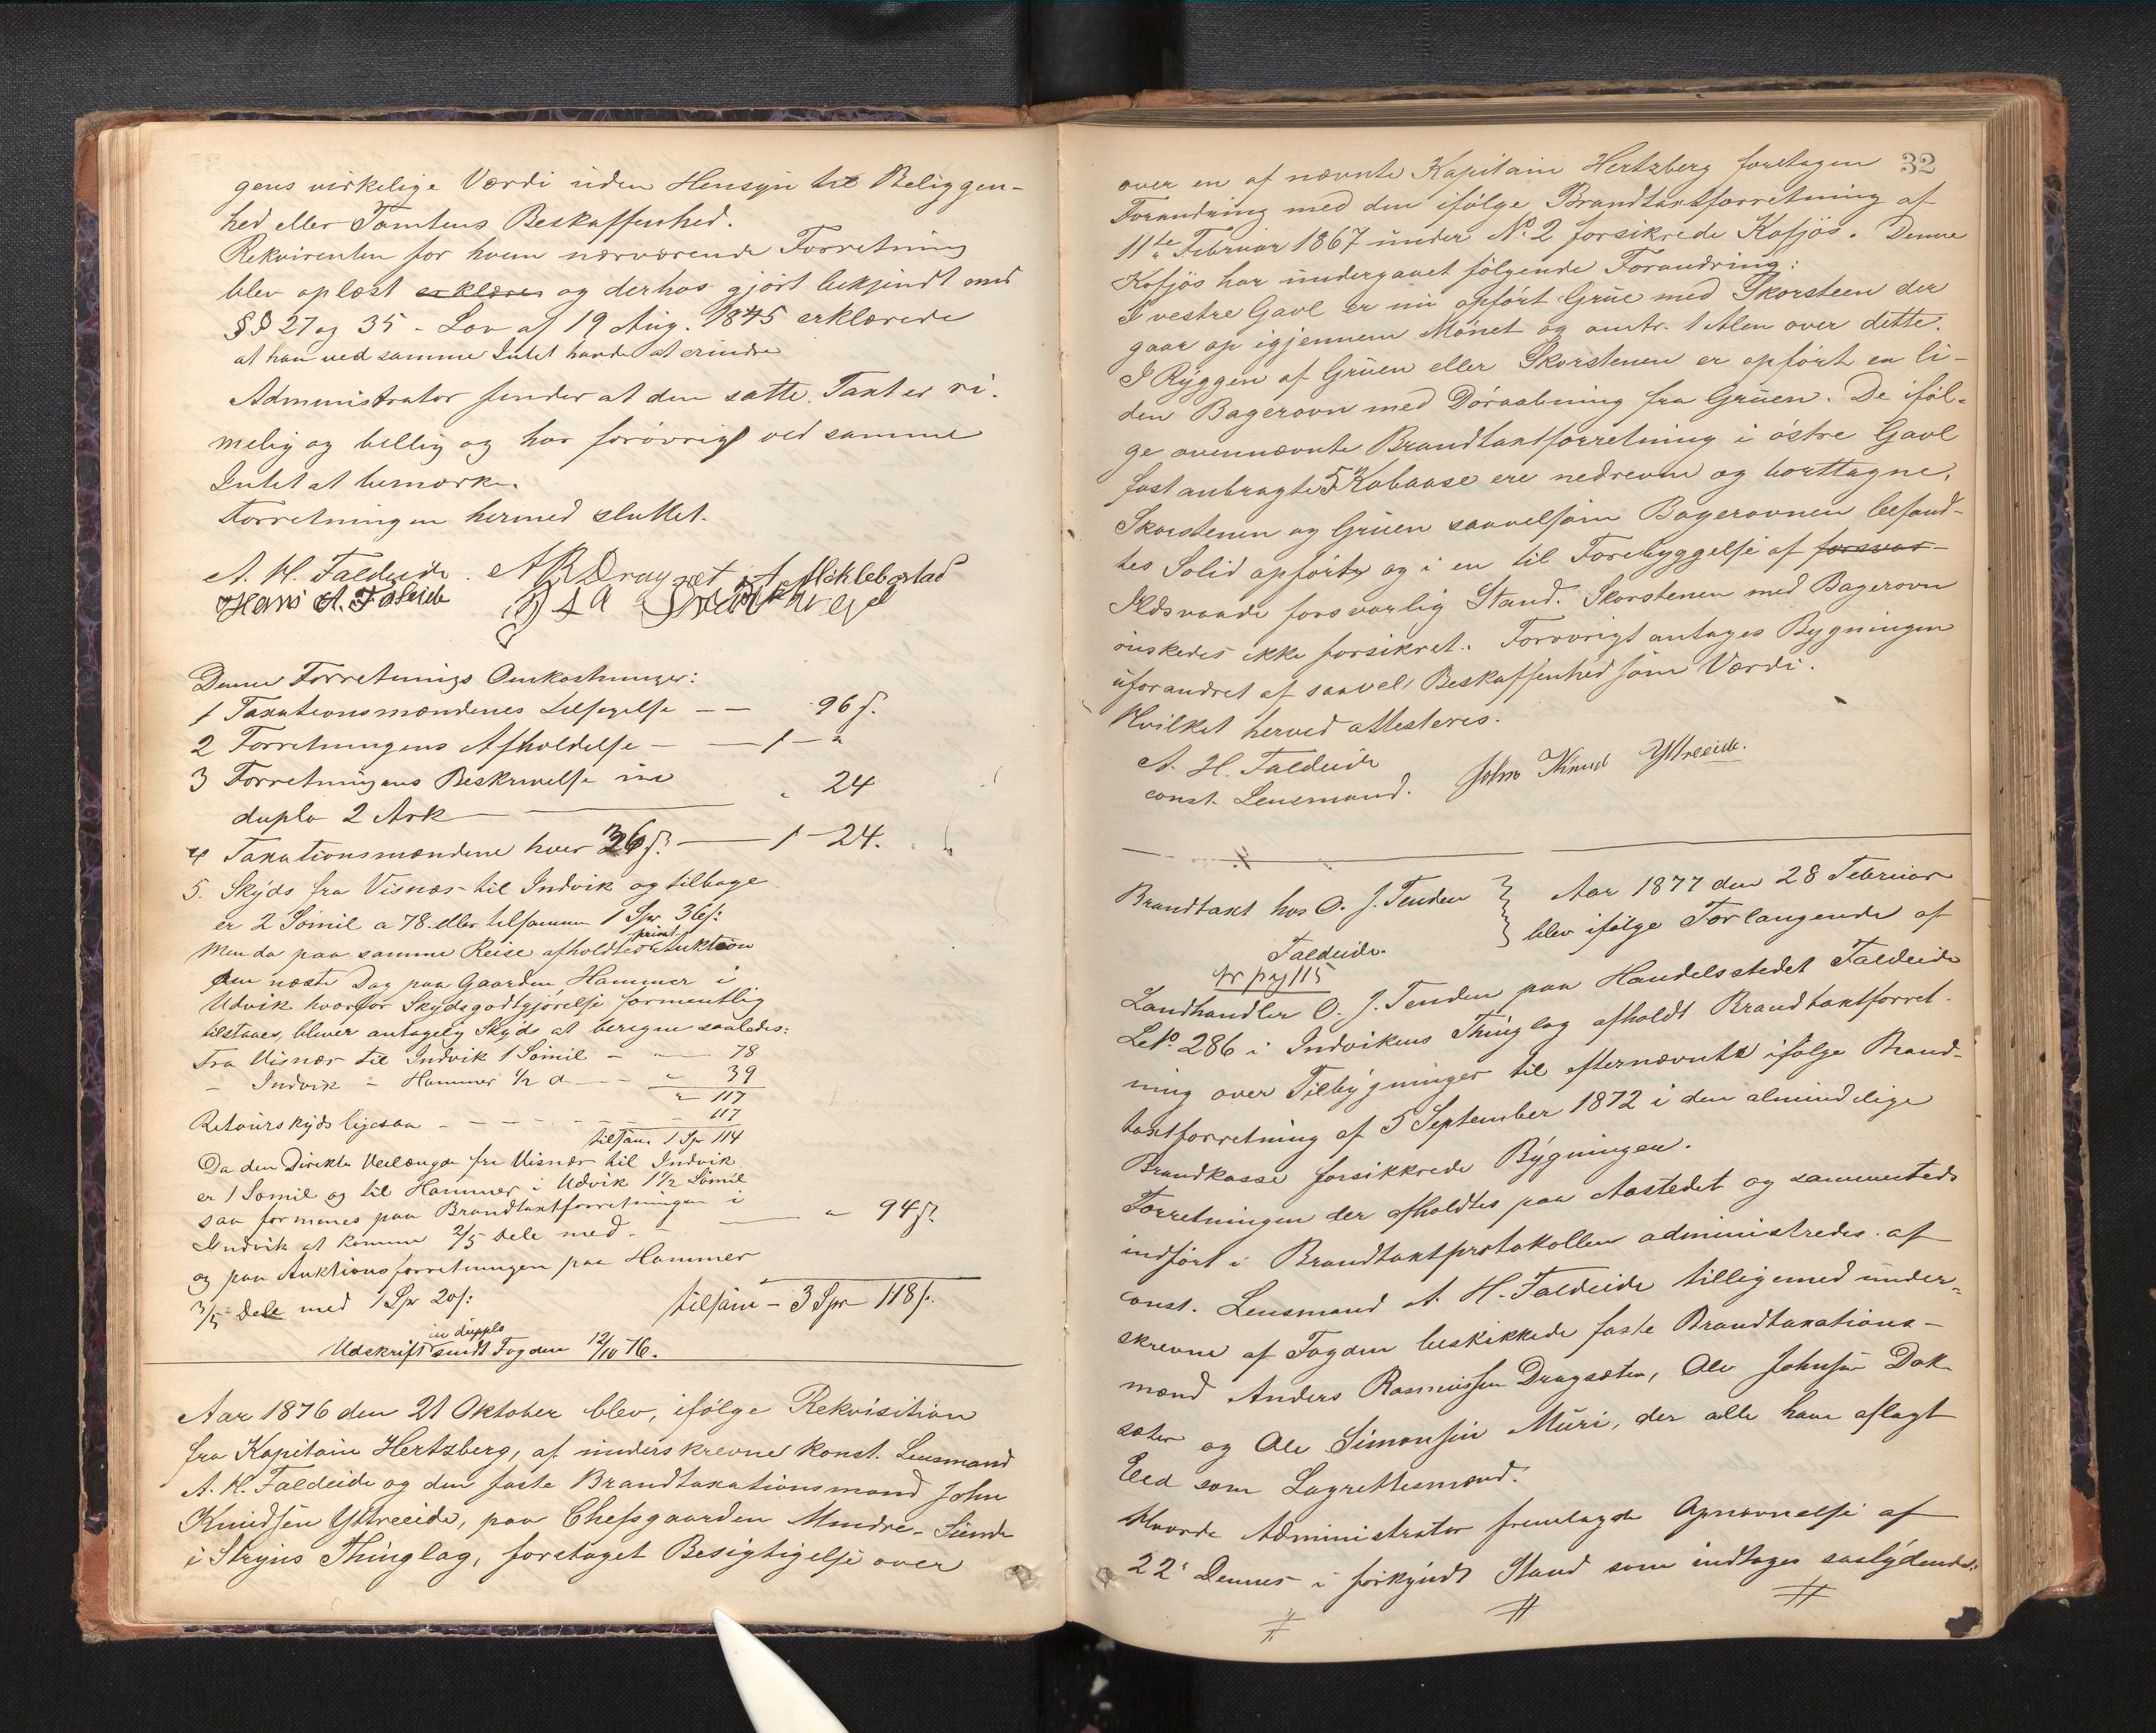 gens virkelige Værdi uden Hensyn til Beliggen-
hed eller Tomtens Beskaffenhed.
Rekvirenten for hvem nærværende Forretning
blev oplæst erklære og derhos gjort bekjendt med
§§ 27 og 35 - Lov af 19 Aug. 1845 erklærede
at han ved samme Intet havde at erindre
Administrator finder at den satte Taxt er ri-
melig og billig og har forøvrigt ved samme
Intet at bemærke.
Forretningen hermed sluttet.
A. H. Faldeide. A R Dragsæt A Myklebostad
Hans A. Faleide
Denne Forretnings Omkostninger:
1 Taxationsmændenes Tilsigelse — — 96 s.
2 Forretningens Afholdelse — — 1 — "
3 Forretningens Beskrivelse in
duplo 2 Ark — " 24
4 Taxationsmændene hver 36 s. — 1 — 24.
5. Skyds fra Visnæs til Indvik og tilbage
er 2 Sømil a 78. eller tilsammen 1 Spr 36 s:
Men da paa samme Reise afholdtes privat Auktion
den næste Dag paa Gaarden Hammer i
Udvik hvorfor Skydsgodtgjørelse formentlig
tilstaaes, bliver antagelig Skyds at beregne saaledes:
Fra Visnæs til Indvik 1 Sømil — — 78
- Indvik - Hammer 1/2 d — — " 39
" 117
Retourskyds ligesaa - - - - - - 117
tilsam. 1 Sp 114
Da den Direkte Veilængde fra Visnæs til Indvik
er 1 Sømil og til Hammer i Udvik 1 1/2 Sømil
saa formenes paa Brandtaxtforretningen i
Indvik at komme 2/5 Dele med — " 94 s.
og paa Auktionsforretningen paa Hammer
3/5 Dele med 1 Spr 20 s: tilsam — 3 Spr 118 s.
Udskrift in dupplo sendt Fogden 12/10 76.
Aar 1876 den 21 Oktober blev, ifølge Rekvisition
fra Kapitain Hertzberg, af underskrevne konst. Lensmand
A. H. Faldeide og den faste Brandtaxationsmand John
Knudsen Ytreeide, paa Chefsgaarden Mindre-Sunde
i Stryns Thinglag, foretaget Besigtigelse over
32
over en af nævnte Kapitain Hertzberg foretagen
Forandring med den ifølge Brandtaxtforretning af
11te Februar 1867 under No. 2 forsikrede Kofjøs. Denne
Kofjøs har undergaaet følgende Forandring:
I vestre Gavl er nu opført Grue med Skorsteen der
gaar op igjennem Mønet og omtr. 1 Alen over dette.
I Ryggen af Gruen eller Skorstenen er opført en li-
den Bagerovn med Døraabning fra Gruen. De iføl-
ge ovennævnte Brandtaxtforretning i østre Gavl
fast anbragte 5 Kobaase ere nedrevne og borttagne,
Skorstenen og Gruen saavelsom Bagerovnen befand-
tes Solid opført og i en til Forebyggelse af forsvar-
Ildsvaade forsvarlig Stand. Skorstenen med Bagerovn
ønskedes ikke forsikret. Forøvrigt antages Bygningen
uforandret af saavel Beskaffenhed som Værdi.
Hvilket herved attesteres.
A. H. Faldeide John Knud Ytreeide.
const. Lensmand.
Brandtaxt hos O. J. Tenden } Aar 1877 den 28 Februar
Faldeide. } blev ifølge Forlangende af
pag 115
Landhandler O. J. Tenden paa Handelsstedet Faldeide
LNo. 286 i Indvikens Thinglag afholdt Brandtaxtforret-
ning over Tilbygninger til efternævnte ifølge Brand-
taxtforretning af 5 September 1872 i den almindelige
Brandkasse forsikkrede Bygningen.
Forretningen der afholdtes paa Aastedet og sammesteds
indført i Brandtaxtprotokollen administredes af
const. Lensmand A. H. Faldeide tilligemed under-
skrevne af Fogden beskikkede faste Brandtaxations-
mænd Anders Rasmussen Dragsæten, Ole Johnsen Dok-
sæter og Ole Simonsen Muri, der alle have aflagt
Eed som Lagrettesmænd.
Hvorde Administrator fremlagde Opnævnelse af
22' Dennes i forkyndt Stand som indtages saalydende: